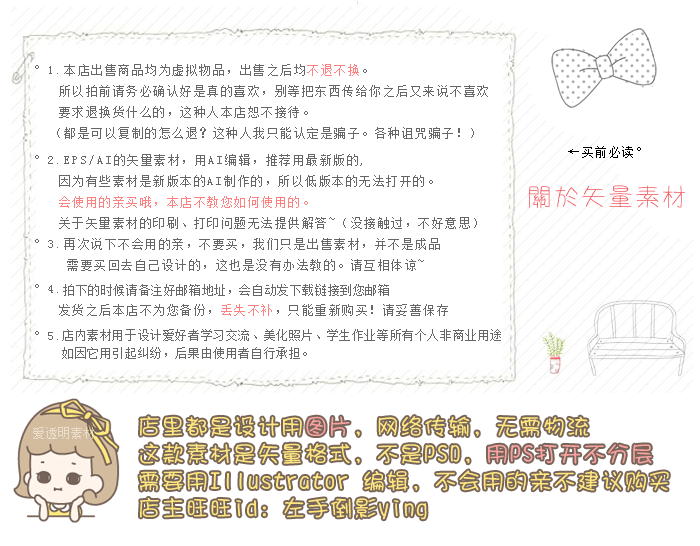 1.本店出售商品均为虚拟物品，出售之后均不退不换。
所以拍前请务必确认好是真的喜欢，别等把东西传给你之后又来说不喜欢
要求退换货什么的，这种人本店恕不接待。
（都是可以复制的怎么退？这种人我只能认定是骗子。各种诅咒骗子！）
2.EPS/AI的矢量素材，用AI编辑，推荐用最新版的,
因为有些素材是新版本的AI制作的，所以低版本的无法打开的。
会使用的亲买哦，本店不教您如何使用的。
关于矢量素材的印刷、打印问题无法提供解答~（没接触过，不好意思）
3.再次说下不会用的亲，不要买，我们只是出售素材，并不是成品
需要买回去自己设计的，这也是没有办法教的。请互相体谅~
4.拍下的时候请备注好邮箱地址，会自动发下载链接到您邮箱
发货之后本店不为您备份，丢失不补，只能重新购买！请妥善保存
5.店内素材用于设计爱好者学习交流、美化照片、学生作业等所有个人非商业用途
如因它用引起纠纷，后果由使用者自行承担。
←买前必读°
關於矢量素材
爱透明素材
店里都是设计用图片，网络传输，无需物流
这款素材是矢量格式，不是PSD，用PS打开不分层
需要用Illustrator 编辑，不会用的亲不建议购买
店主旺旺id：左手倒影ying